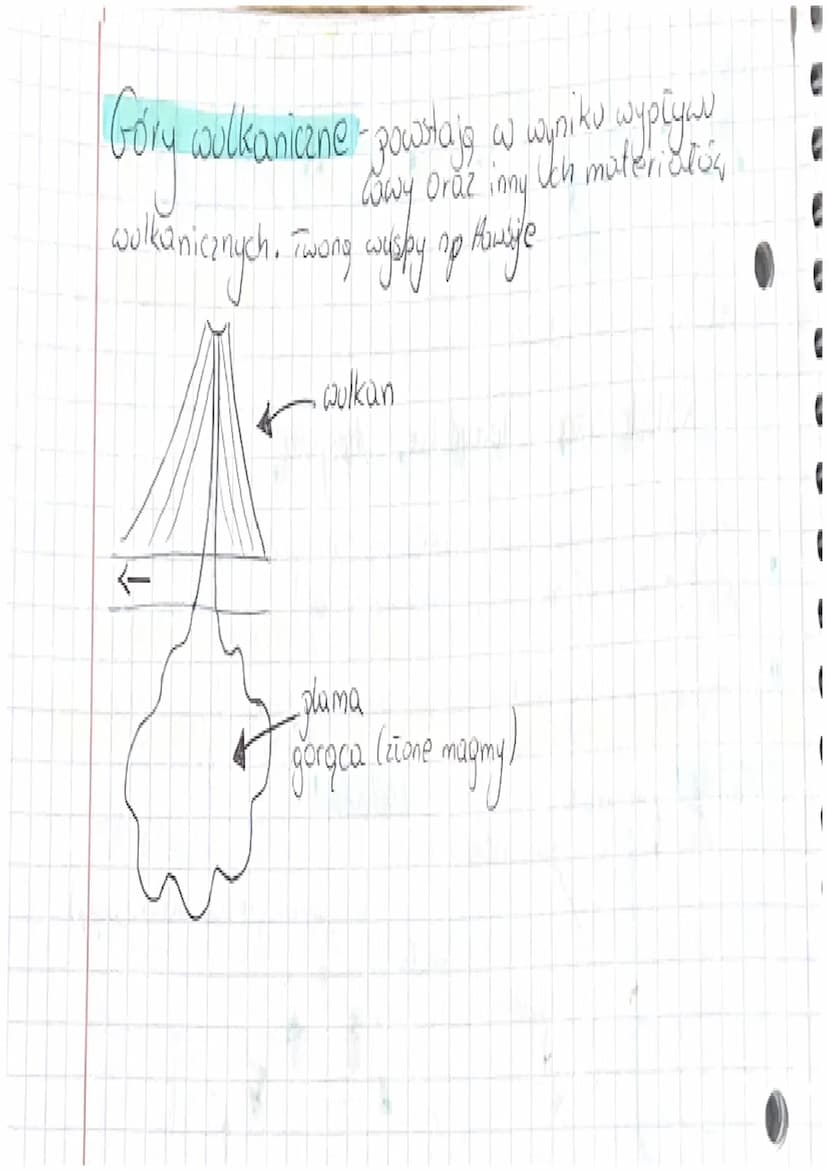 Góry wulkaniczne - powstają w wyniku wypływu
lawy oraz innych materiałów
wulkanicznych. Tworzą wyspy np Hawaje
wulkan
pluma
gorąca (zione magmy)